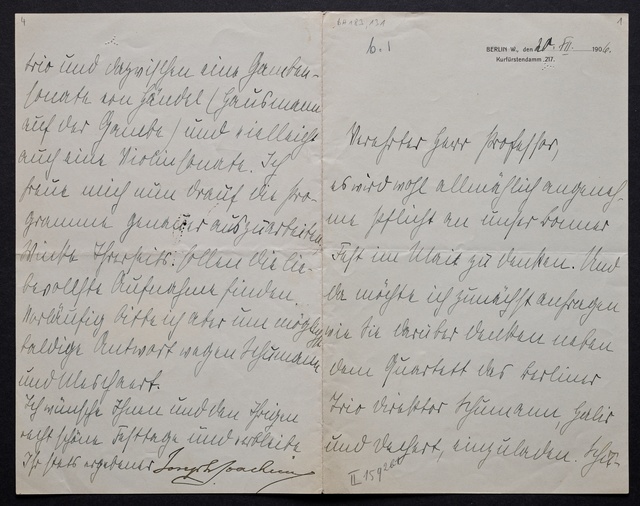 1
BERLIN W., den 20. XII. 1906.
Kurfürstendamm 217.
Verehrter Herr Professor,
es wird wohl allmählich angeneh-
me Pflicht an unser Bonner
Fest im Mai zu denken. Und
da möchte ich zunächst anfragen
wie Sie darüber denken neben
dem Quartett das Berliner
Trio Direktor Schumann, Halir
und Dechert, einzuladen.
II 159
4
b. 1
trio und dazwischen eine Gamben-
sonate von Händel (Hausmann
auf der Gambe) und vielleicht
auch eine Violinsonate. Ich
freue mich nun drauf die Pro-
gramme genauer auszuarbeiten
Winke Ihrerseits sollen die lie-
bevollste Aufnahme finden.
Vorläufig bitte ich aber um möglichst
baldige Antwort wegen Schumann
und Meschaert.
Ich wünsche Ihnen und den Ihrigen
recht schöne Festtage und verbleibe
Ihr stets ergebener Joseph Joachim